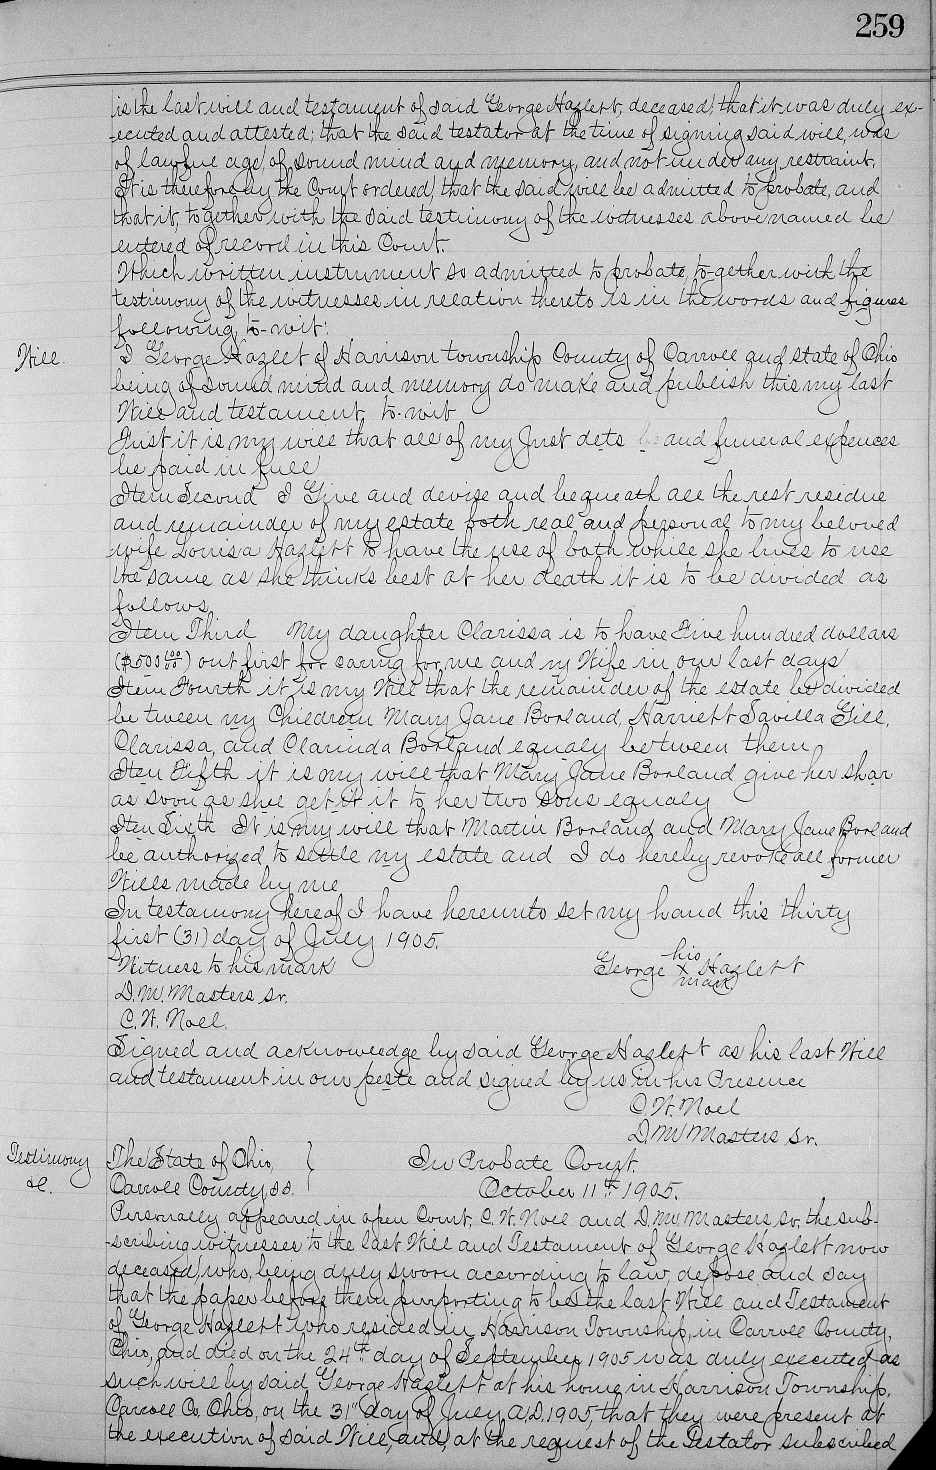 259
is the last will and testament of said George Hazlett, deceased; that it was duly ex-
-ecuted and attested; that the said testator at the time of signing said will, was
of lawful age, of sound mind and memory, and not under any restraint.
It is therefore by the Court ordered, that the said will be admitted to probate, and
that it, together with the said testimony of the witnesses above named be
entered of record in this Court.
Which written instrument so admitted to probate, together with the
testimony of the witnesses in relation thereto is in the words and figures
following, to-wit:
Will.
I George Hazlet of Harrison township County of Carroll and state of Ohio
being of sound mind and memory do make and publish this my last
Will and testament, to-wit
First it is my will that all of my Just dets and funeral expences
be paid in full
Item Second I Give and devise and bequeath all the rest residue
and remainder of my estate both real and personal to my beloved
wife Louisa Hazlett to have the use of both while she lives to use
the same as she thinks best at her death it is to be divided as
follows
Item Third My daughter Clarissa is to have Five hundred dollars
($500 00/00) out first for caring for me and my Wife in our last days
Item Fourth it is my Will that the remainder of the estate be divided
be tween my Children Mary Jane Borland, Harriett Savilla Gill,
Clarissa, and Clarinda Borland equaly between them
Iten Fifth it is my will that Mary Jane Borland give her shar
as soon as shee get it it to her two sons equaly
Iten Sixth It is my will that Martin Borland and Mary Jane Borland
be authorized to settle my estate and I do hereby revoke all former
Wills made by me
In testamony hereof I have hereunto set my hand this thirty
first (31) day of July 1905.
Witness to his mark
George his X mark Hazlett
D. M. Masters Sr.
C. W. Noel.
Signed and acknowledge by said George Hazlett as his last Will
and testament in our peste and signed by us in his Presence
C. W. Noel
D. M. Masters Sr.
Testimony
&c.
The State of Ohio, } In Probate Court.
Carroll County, ss. October 11th 1905.
Personally appeared in open Court, C. W. Noel and D. M. Masters Sr, the sub-
-scribing witnesses to the last Will and Testament of George Hazlett now
deceased, who, being duly sworn according to law, depose and say
that the paper before them purporting to be the last Will and Testament
of George Hazlett who resided in Harrison Township, in Carroll County,
Ohio, and died on the 24th day of September 1905 was duly executed as
such will by said George Hazlett at his home in Harrison Township,
Carroll Co. Ohio, on the 31" day of July, A.D. 1905, that they were present at
the execution of said Will, and, at the request of the Testator subscribed